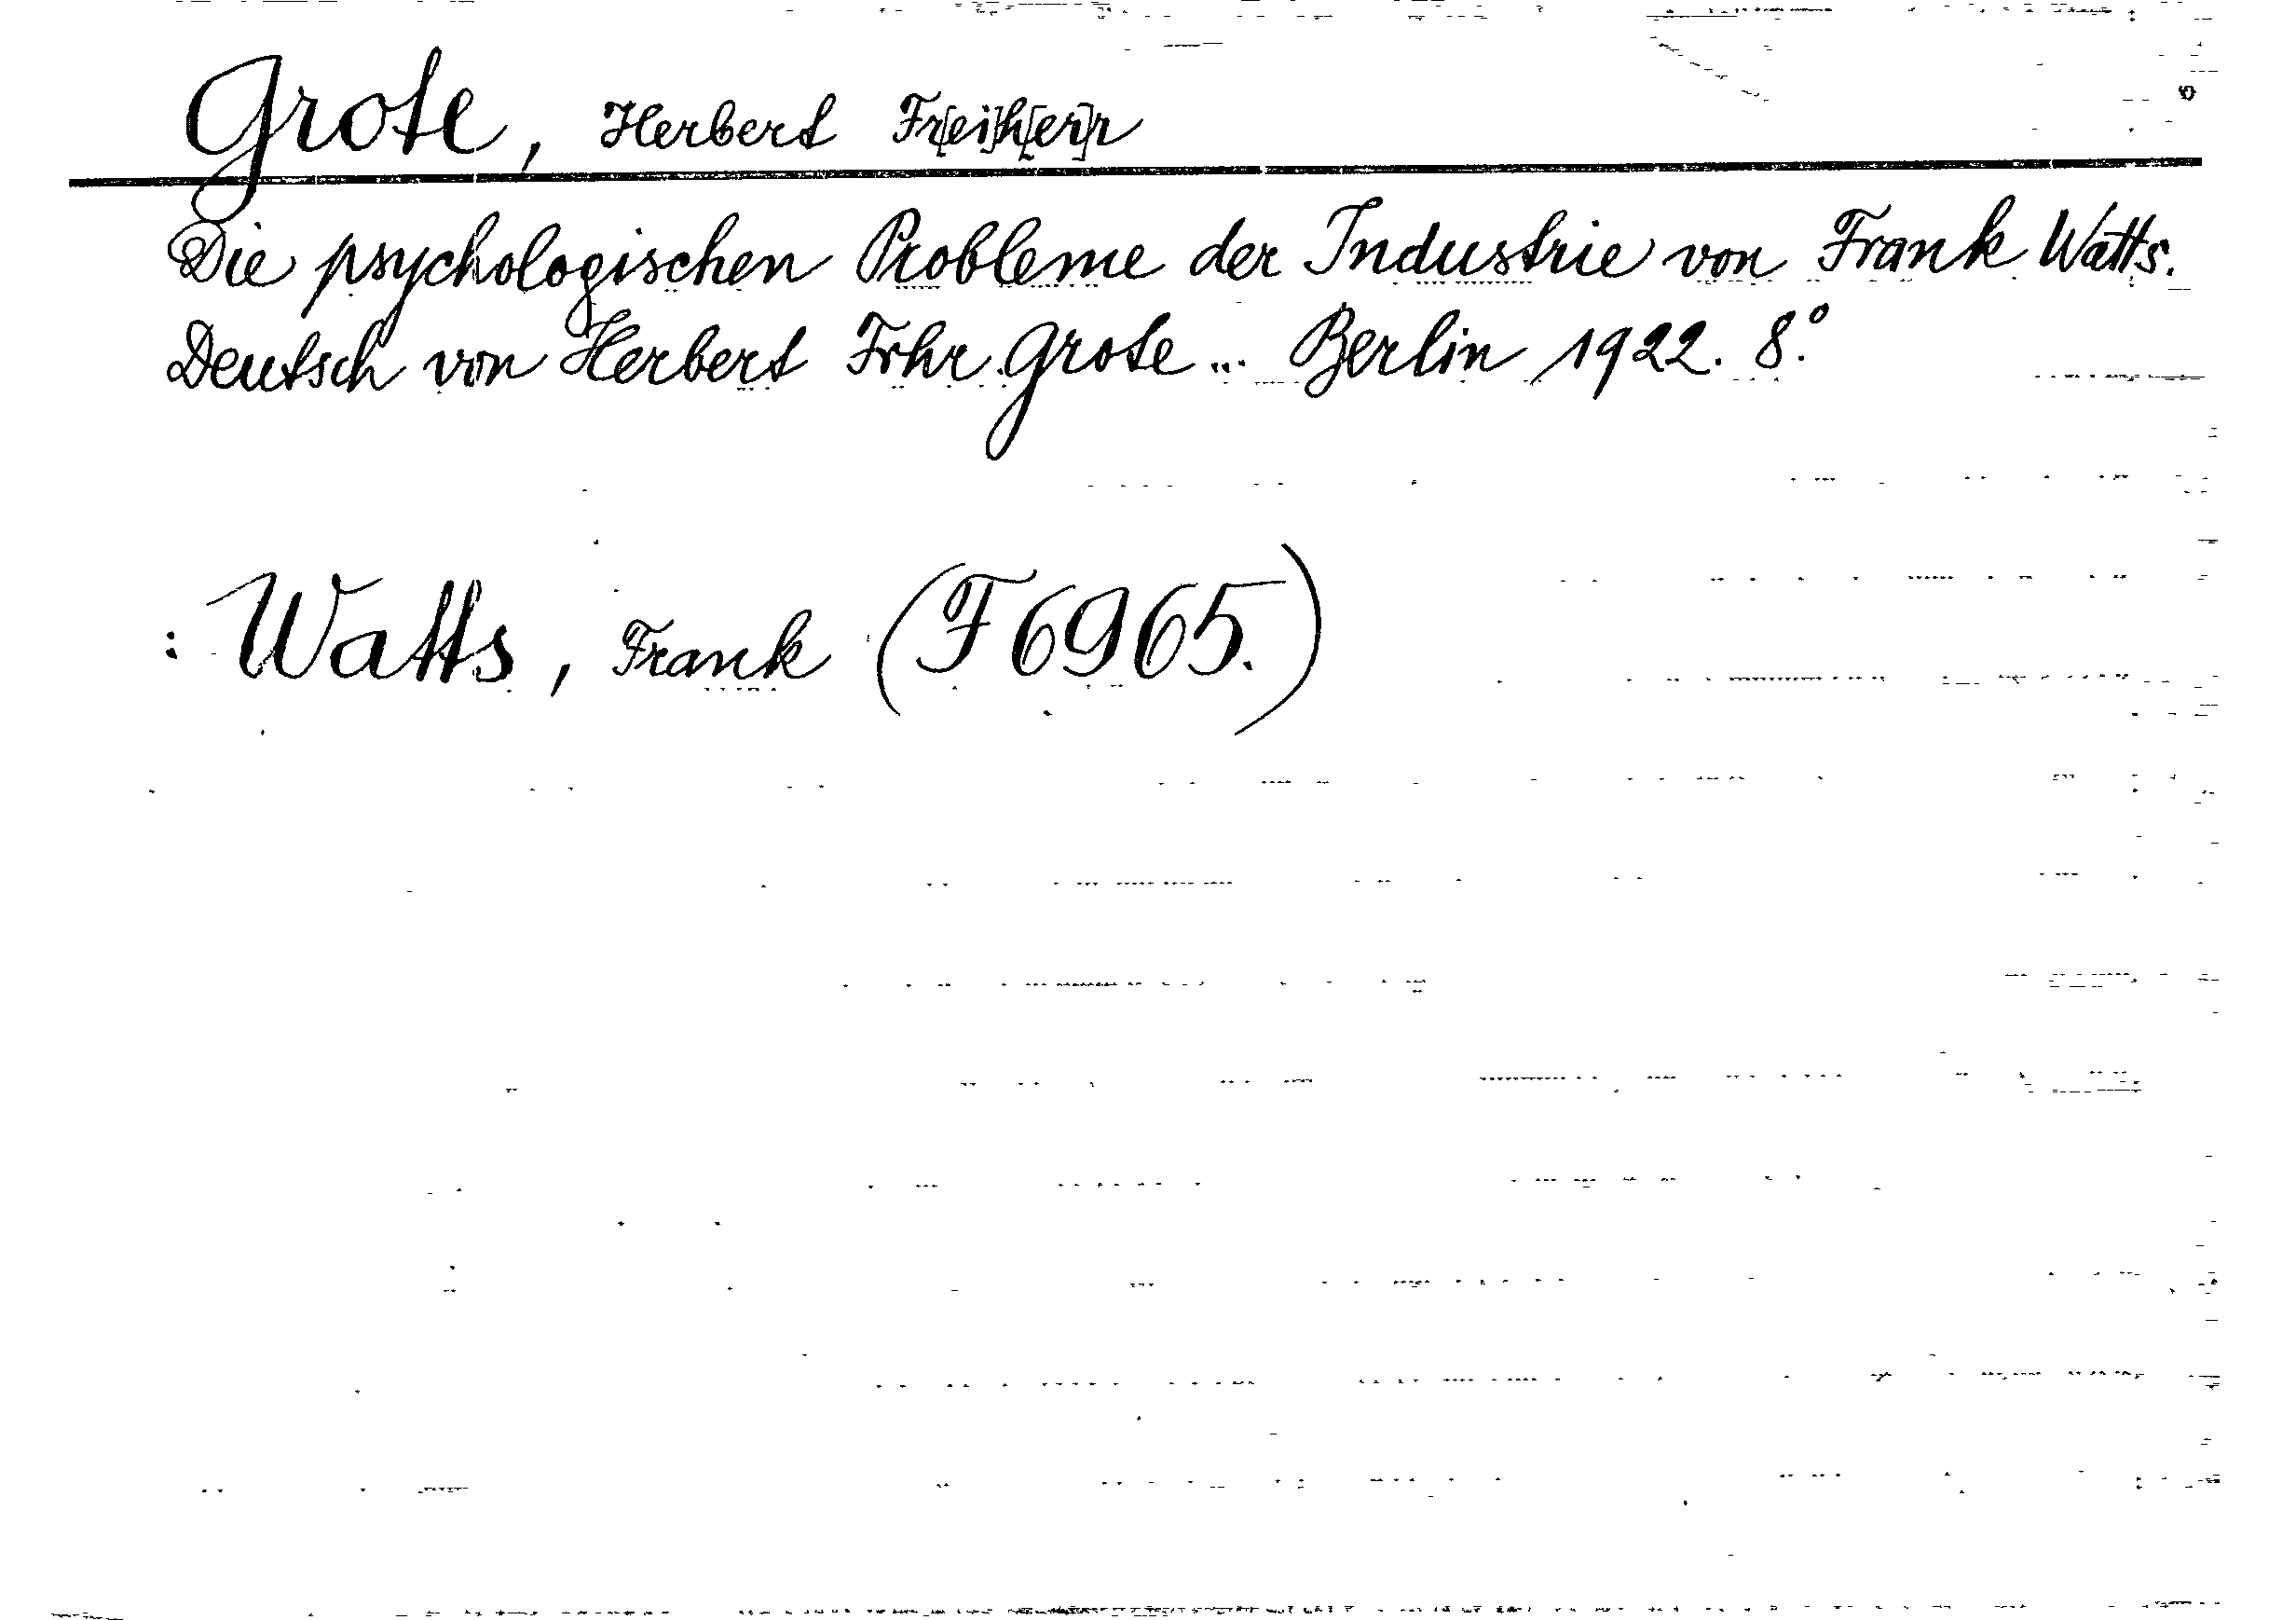 Grote, Herbert Fr[ei]h[er]r
Die psychologischen Probleme der Industrie von Frank Watts.
Deutsch von Herbert Frhr. Grote... Berlin 1922. 8.°
: Watts, Frank (F 6965.)